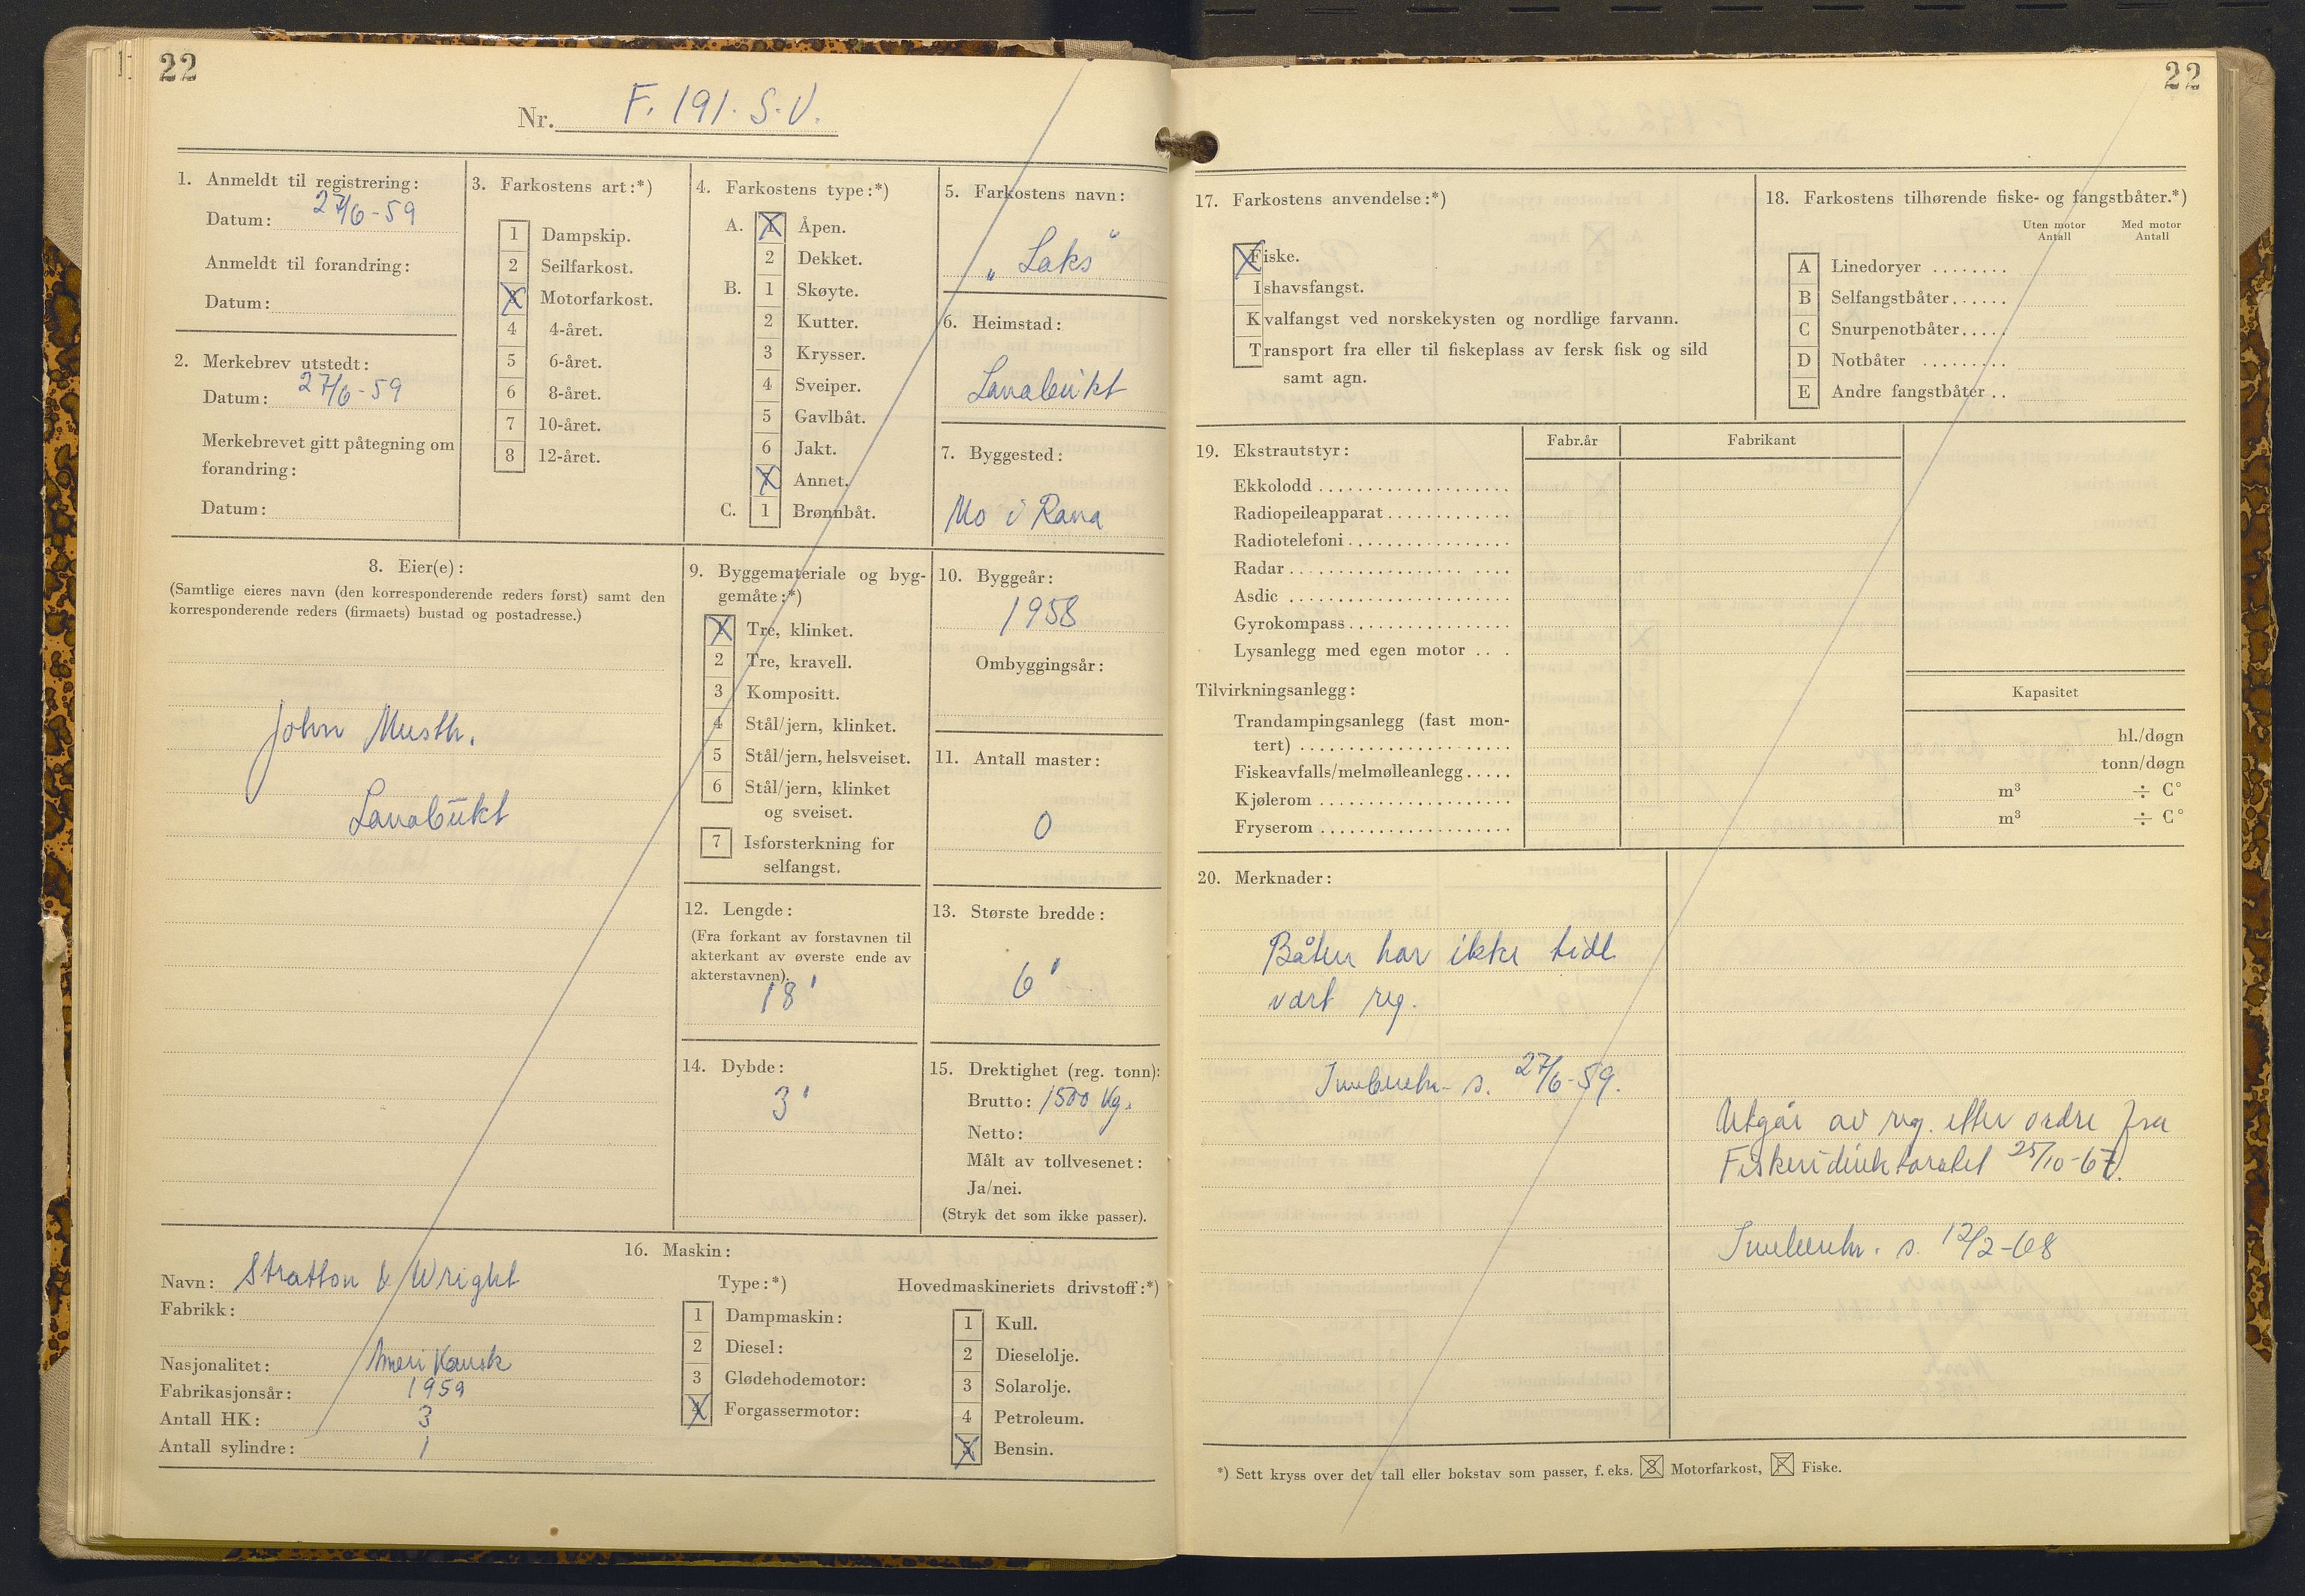 22
Nr. F. 191. S.V.
1. Anmeldt til registrering:
Datum: 27/6-59
Anmeldt til forandring:
Datum:
2. Merkebrev utstedt:
Datum: 27/6-59
Merkebrevet gitt påtegning om
forandring:
Datum:
3. Farkostens art:*)
1 Dampskip.
2 Seilfarkost.
3 Motorfarkost.
4 4-året.
5 6-året.
6 8-året.
7 10-året.
8 12-året.
4. Farkostens type:*)
A. 1 Åpen.
2 Dekket.
B. 1 Skøyte.
2 Kutter.
3 Krysser.
4 Sveiper.
5 Gavlbåt.
6 Jakt.
7 Annet.
C. 1 Brønnbåt.
5. Farkostens navn:
„Laks"
6. Heimstad:
Lanabukt
7. Byggested:
Mo i Rana
8. Eier(e):
(Samtlige eieres navn (den korresponderende reders først) samt den
korresponderende reders (firmaets) bustad og postadresse.)
John Musth.
Lanabukt
9. Byggemateriale og byg-
gemåte:*)
1 Tre, klinket.
2 Tre, kravell.
3 Kompositt.
4 Stål/jern, klinket.
5 Stål/jern, helsveiset.
6 Stål/jern, klinket
og sveiset.
7 Isforsterkning for
selfangst.
10. Byggeår:
1958
Ombyggingsår:
11. Antall master:
0
12. Lengde:
(Fra forkant av forstavnen til
akterkant av øverste ende av
akterstavnen).
18'
13. Største bredde:
6'
14. Dybde:
3'
15. Drektighet (reg. tonn):
Brutto: 1500 Kg.
Netto:
Målt av tollvesenet:
Ja/nei.
(Stryk det som ikke passer).
16. Maskin:
Navn: Stratton & Wright
Fabrikk:
Nasjonalitet: Amerikansk
Fabrikasjonsår: 1959
Antall HK: 3
Antall sylindre: 1
Type:*)
1 Dampmaskin:
2 Diesel:
3 Glødehodemotor:
4 Forgassermotor:
Hovedmaskineriets drivstoff:*)
1 Kull.
2 Dieselolje.
3 Solarolje.
4 Petroleum.
5 Bensin.
22
17. Farkostens anvendelse:*)
Fiske.
Ishavsfangst.
Kvalfangst ved norskekysten og nordlige farvann.
Transport fra eller til fiskeplass av fersk fisk og sild
samt agn.
18. Farkostens tilhørende fiske- og fangstbåter.*)
Uten motor Med motor
Antall Antall
A Linedoryer ........
B Selfangstbåter......
C Snurpenotbåter.....
D Notbåter .........
E Andre fangstbåter ..
19. Ekstrautstyr:
Fabr.år Fabrikant
Ekkolodd ....................
Radiopeileapparat.............
Radiotelefoni.................
Radar ........................
Asdic ........................
Gyrokompass.................
Lysanlegg med egen motor ...
Tilvirkningsanlegg:
Kapasitet
Trandampingsanlegg (fast mon-
tert) ...................... hl./døgn
Fiskeavfalls/melmølleanlegg..... tonn/døgn
Kjølerom .................... m³ ÷ C°
Fryserom .................... m³ ÷ C°
20. Merknader:
Båten har ikke tidl.
vært reg.
s. 27/6-59.
Utgår av reg. etter ordre fra
Fiskeridirektoratet 25/10-67.
s. 12/2-68
*) Sett kryss over det tall eller bokstav som passer, f. eks. 3 Motorfarkost, F Fiske.